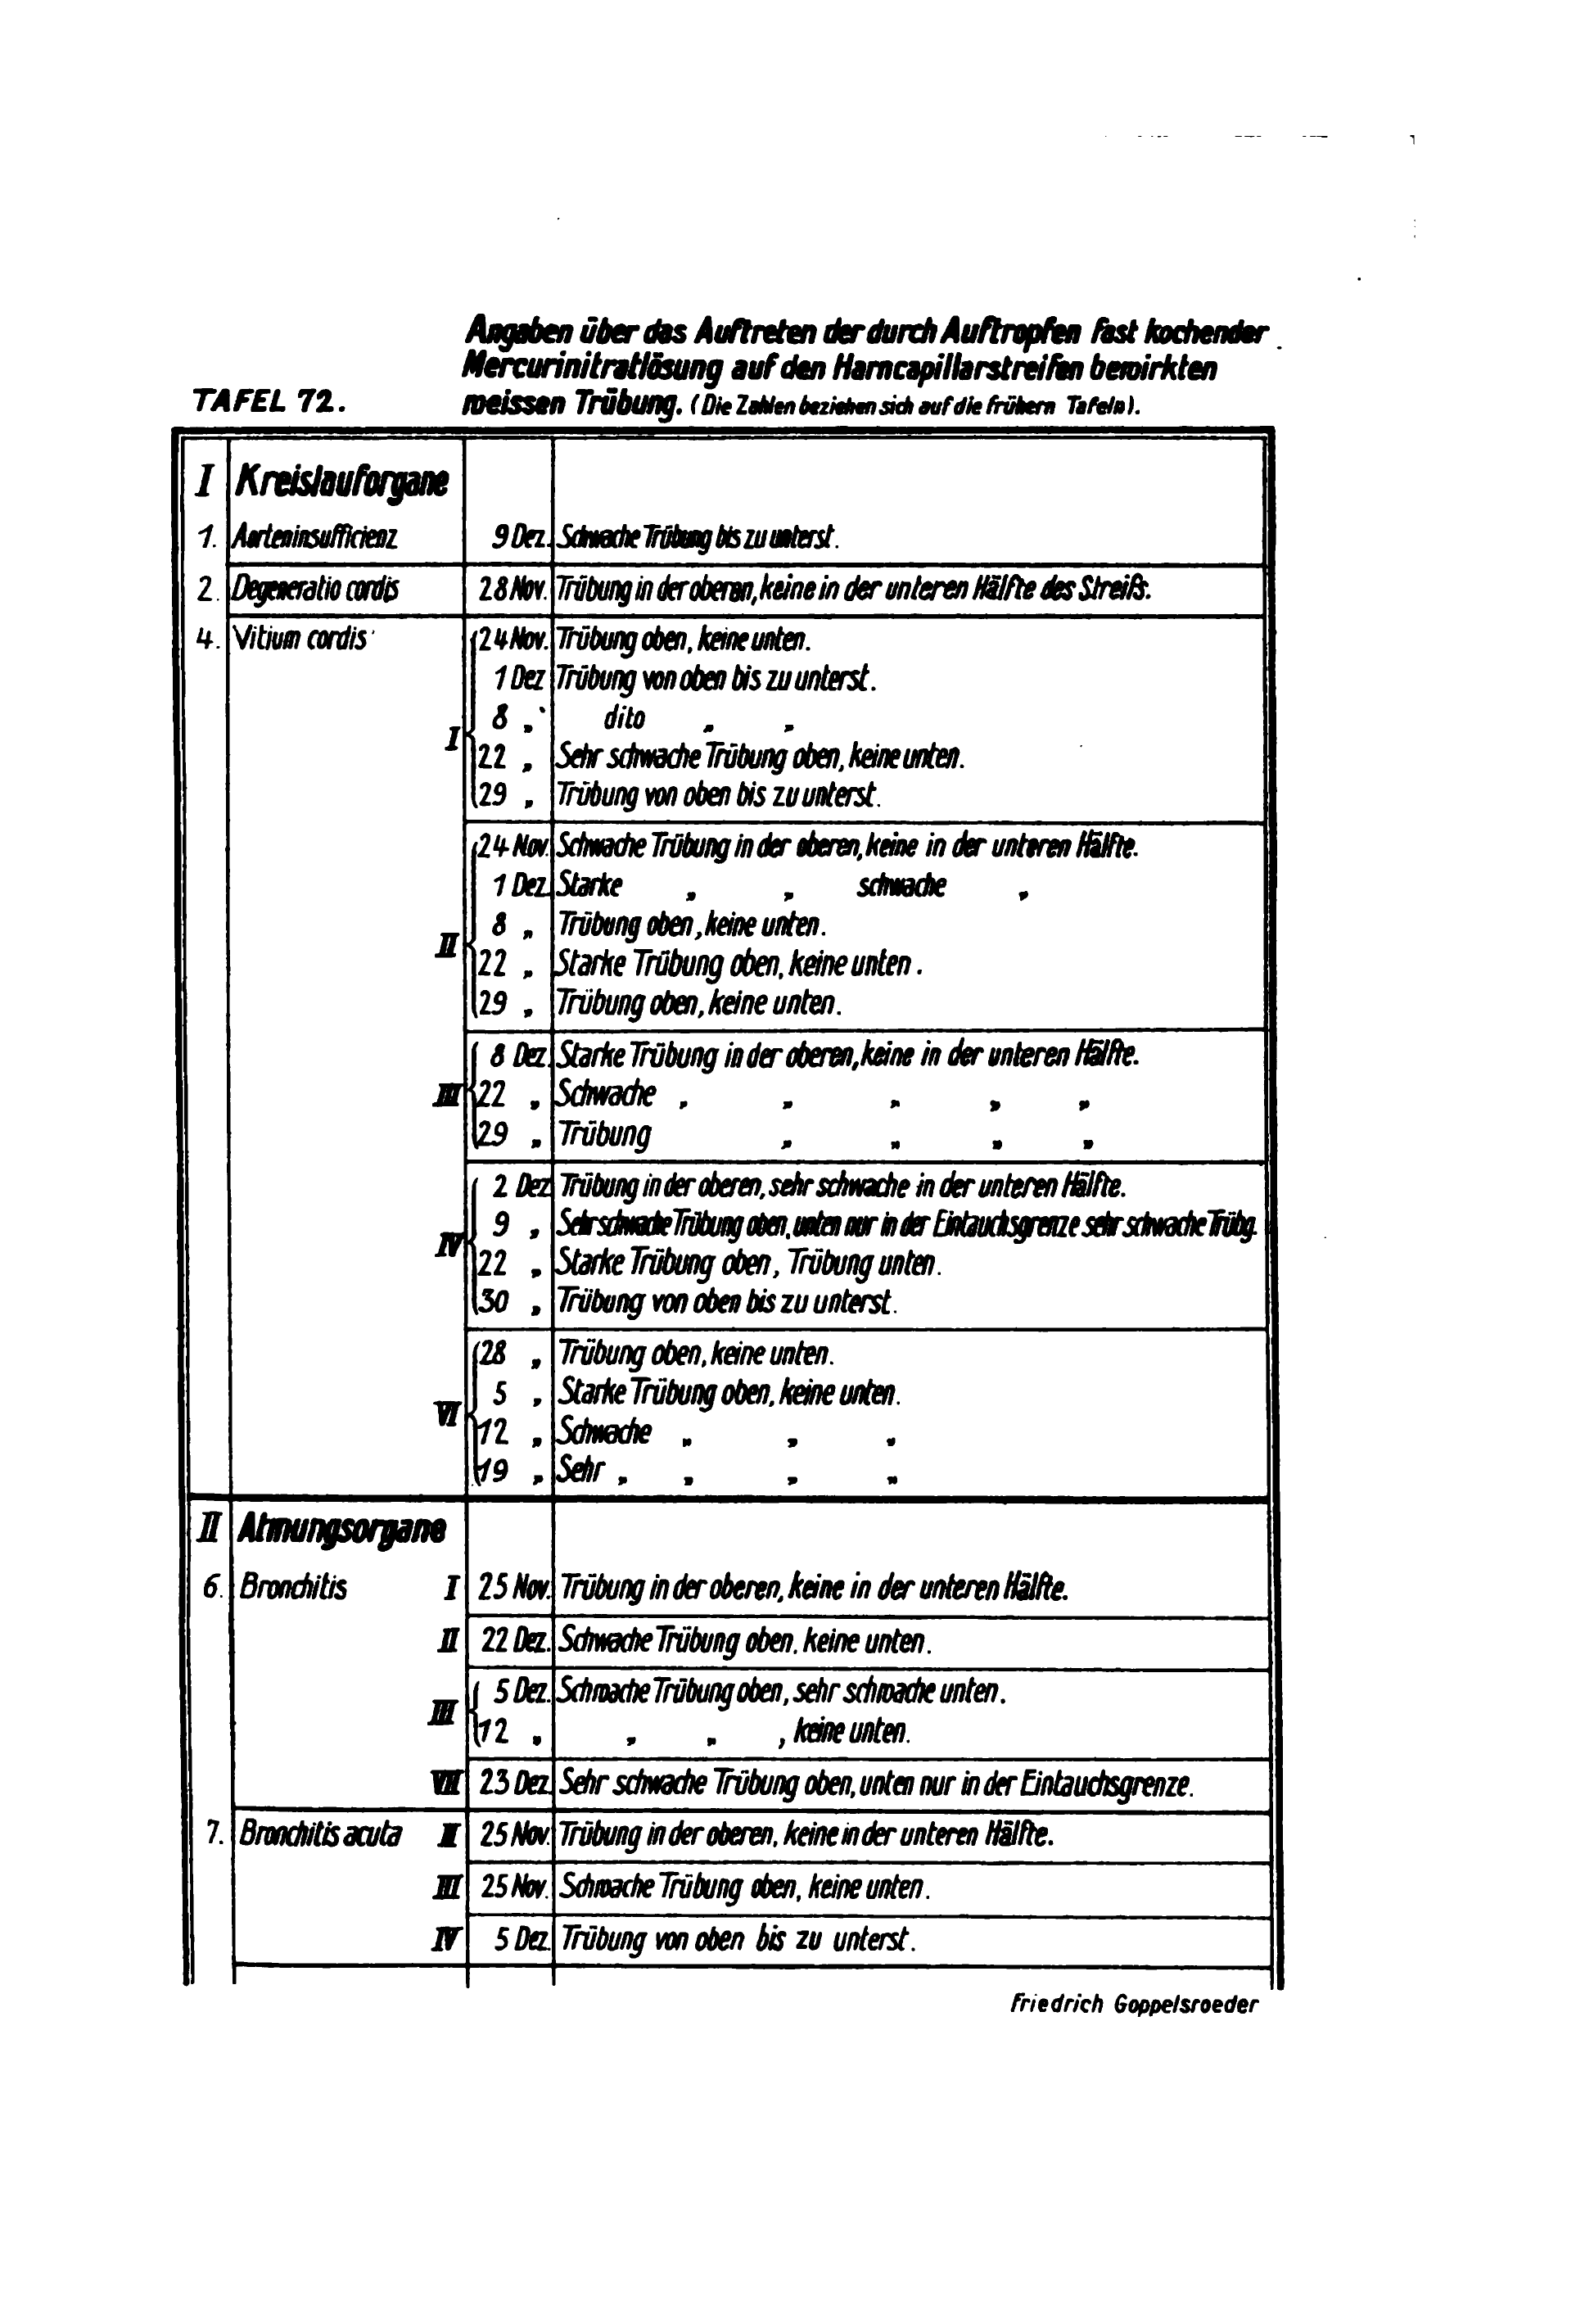 Angaben über das Auftreten der durch Auftropfen fast kochender
Mercurinitratlösung auf den Harncapillarstreifen bewirkten
TAFEL 72. weissen Trübung. (Die Zahlen beziehen sich auf die frühern Tafeln).
I Kreislauforgane
1. Aorteninsufficienz 9 Dez. Schwache Trübung bis zu unterst.
2. Degeneratio cordis 28 Nov. Trübung in der oberen, keine in der unteren Hälfte des Streifs.
4. Vitium cordis 24 Nov. Trübung oben, keine unten.
1 Dez Trübung von oben bis zu unterst.
8 „ dito „ „
I 22 „ Sehr schwache Trübung oben, keine unten.
29 „ Trübung von oben bis zu unterst.
24 Nov. Schwache Trübung in der oberen, keine in der unteren Hälfte.
1 Dez. Starke „ „ schwache „
8 „ Trübung oben, keine unten.
II 22 „ Starke Trübung oben, keine unten.
29 „ Trübung oben, keine unten.
8 Dez. Starke Trübung in der oberen, keine in der unteren Hälfte.
III 22 „ Schwache „ „ „ „ „
29 „ Trübung „ „ „ „
2 Dez Trübung in der oberen, sehr schwache in der unteren Hälfte.
9 „ Sehr schwache Trübung oben, unten nur in der Eintauchsgrenze sehr schwache Trübg.
IV 22 „ Starke Trübung oben, Trübung unten.
30 „ Trübung von oben bis zu unterst.
28 „ Trübung oben, keine unten.
5 „ Starke Trübung oben, keine unten.
VI 12 „ Schwache „ „ „
19 „ Sehr „ „ „ „
II Atmungsorgane
6. Bronchitis I 25 Nov. Trübung in der oberen, keine in der unteren Hälfte.
II 22 Dez. Schwache Trübung oben, keine unten.
5 Dez. Schwache Trübung oben, sehr schwache unten.
III 12 „ „ „ , keine unten.
VII 23 Dez. Sehr schwache Trübung oben, unten nur in der Eintauchsgrenze.
7. Bronchitis acuta II 25 Nov. Trübung in der oberen, keine in der unteren Hälfte.
III 25 Nov. Schwache Trübung oben, keine unten.
IV 5 Dez. Trübung von oben bis zu unterst.
Friedrich Goppelsroeder